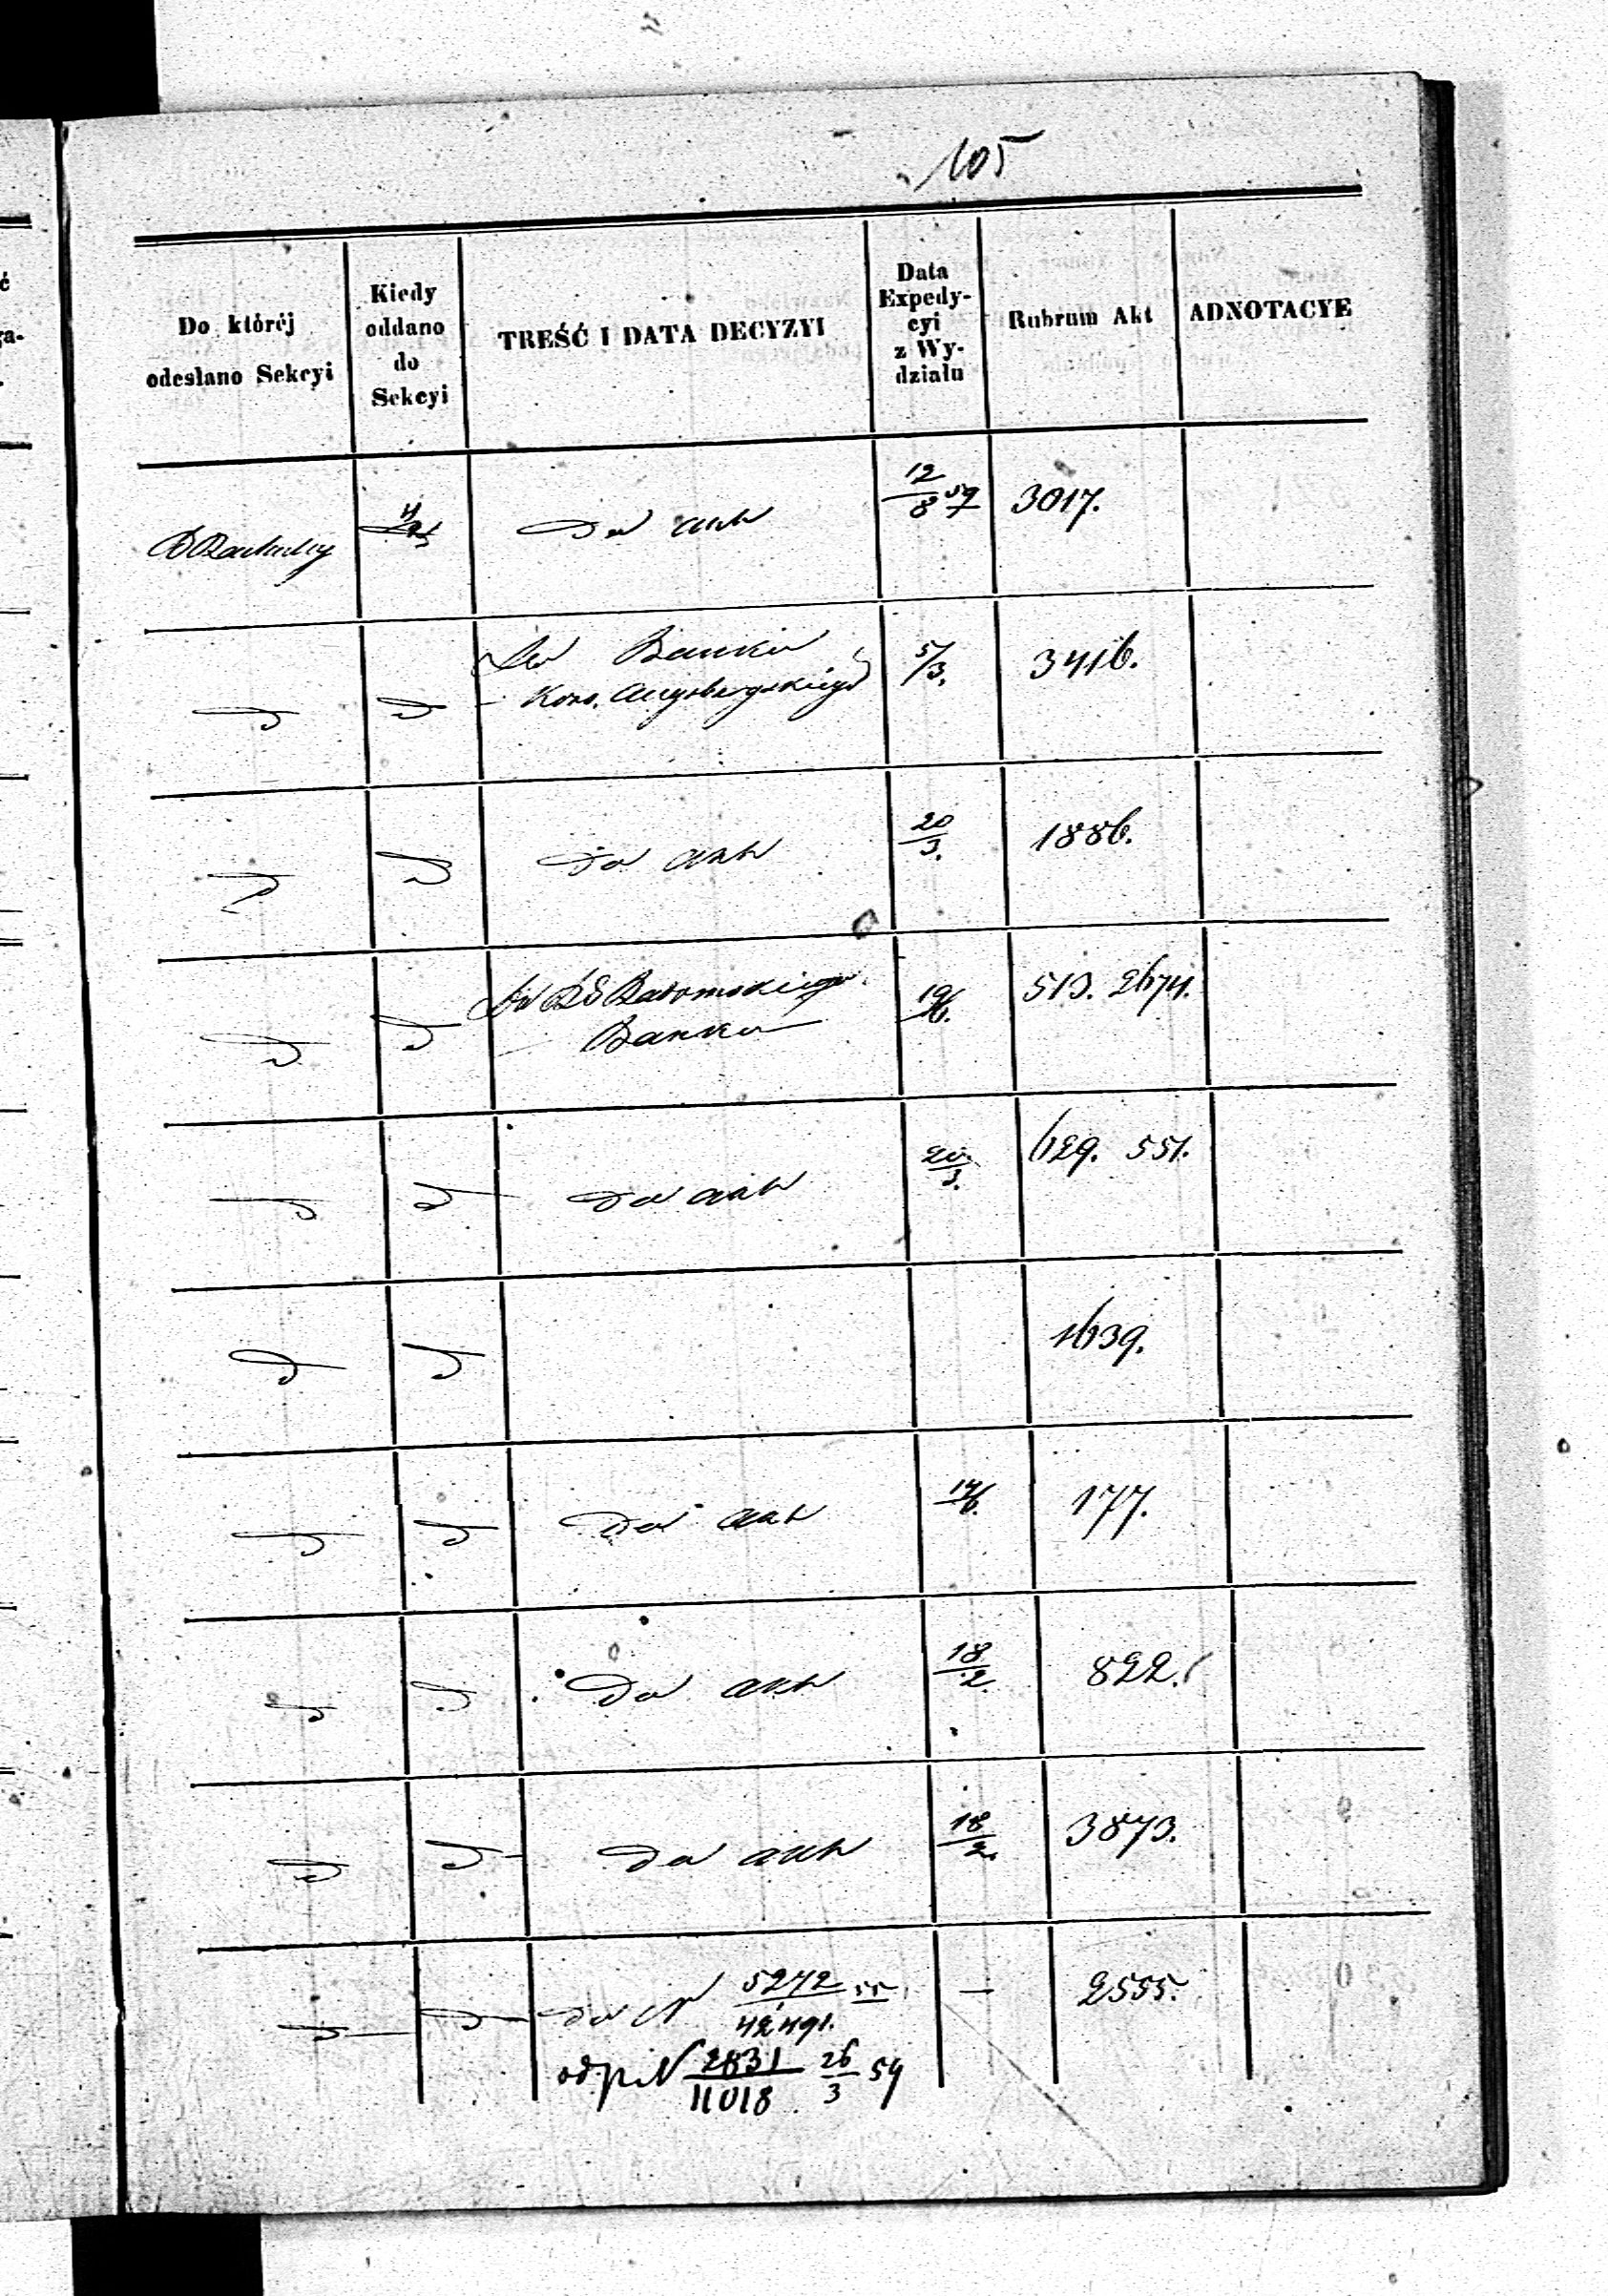 105
Do któréj odesłano Sekcyi
Kiedy oddano do Sekcyi
TREŚĆ I DATA DECYZYI
Data Expedycyi z Wydziału
Rubrum Akt
ADNOTACYE
Do akt 12/8 59 3017.
Do Banku 5/3. 3416.
Kons. Augsburgskiego
Do akt 20/3. 1886.
Radomskiego 19/6. 513. 2674.
Banku
Do akt 20/3. 629. 551.
1639.
Do akt 14/6. 177.
Do akt 18/2. 822.
Do akt 18/2. 3873.
do N 5272/42491. 55 — 2555.
odpis N 2831/11018 26/3 59